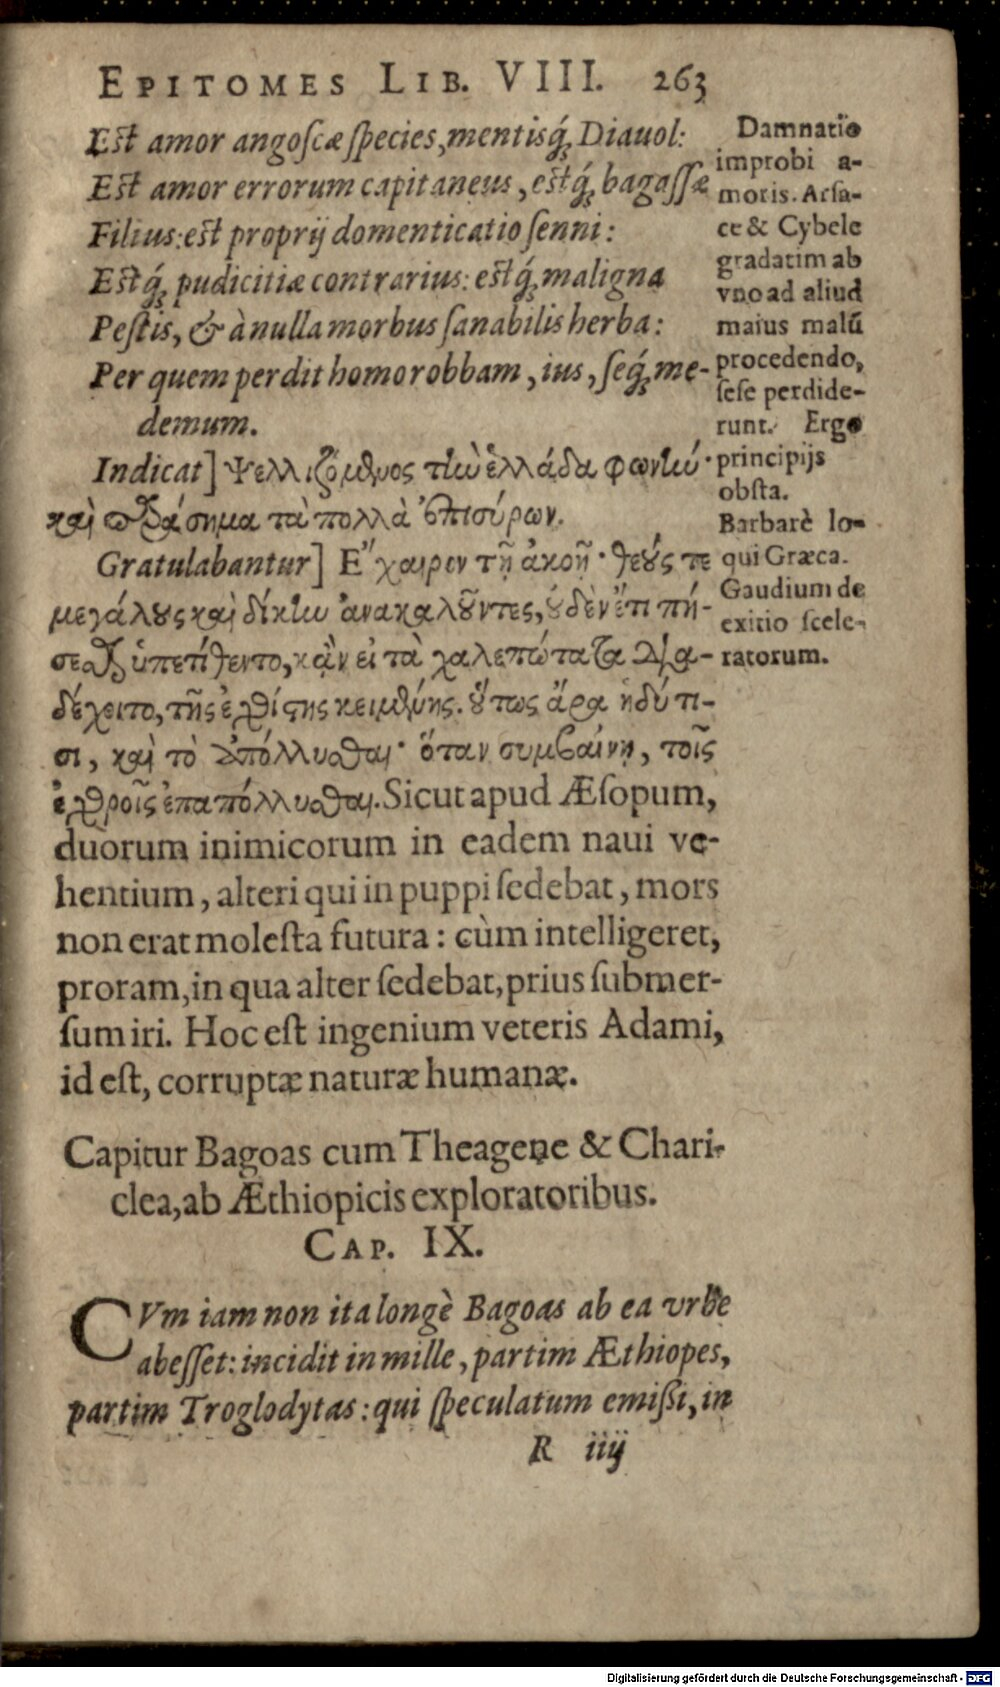 EPITOMES LIB. VIII. 263
Eſt amor angoſcæ ſpecies, mentisq́; Diauol:
Eſt amor errorum capitaneus, eſtq́; bagaſſæ
Filius: eſt proprij domenticatio ſenni:
Eſtq́; pudicitiæ contrarius: eſtq́; maligna
Peſtis, & à nulla morbus ſanabilis herba:
Per quem perdit homo robbam, ius, ſeq́; me-
demum.
Indicat] Ψελλιζόμενος τὴν ἑλλάδα φωνὴν·
καὶ παράσημα τὰ πολλὰ ἐπισύρων.
Gratulabantur] Ἔχαιρεν τῇ ἀκοῇ· θεούς τε
μεγάλους καὶ δίκην ἀνακαλοῦντες, οὐδὲν ἔτι πή-
σεσθαι ὑπετίθεντο, κἂν εἰ τὰ χαλεπώτατα δια-
δέχοιτο, τῆς ἐχθίστης κειμένης. οὕτως ἄρα ἡδύ τι-
σι, καὶ τὸ ἀπόλλυσθαι· ὅταν συμβαίνῃ, τοῖς
ἐχθροῖς ἐπαπόλλυσθαι. Sicut apud Æſopum,
duorum inimicorum in eadem naui ve-
hentium, alteri qui in puppi ſedebat, mors
non erat moleſta futura: cùm intelligeret,
proram, in qua alter ſedebat, prius ſubmer-
ſum iri. Hoc eſt ingenium veteris Adami,
id eſt, corruptæ naturæ humanæ.
Damnatio
improbi a-
moris. Arſa-
ce & Cybele
gradatim ab
vno ad aliud
maius malū
procedendo,
ſeſe perdide-
runt. Ergo
principijs
obſta.
Barbarè lo-
qui Græca.
Gaudium de
exitio ſcele-
ratorum.
Capitur Bagoas cum Theagene & Chari-
clea, ab Æthiopicis exploratoribus.
CAP. IX.
CVm iam non ita longè Bagoas ab ea vrbe
abeſſet: incidit in mille, partim Æthiopes,
partim Troglodytas: qui ſpeculatum emiſſi, in
R iiij
Digitalisierung gefördert durch die Deutsche Forschungsgemeinschaft - DFG